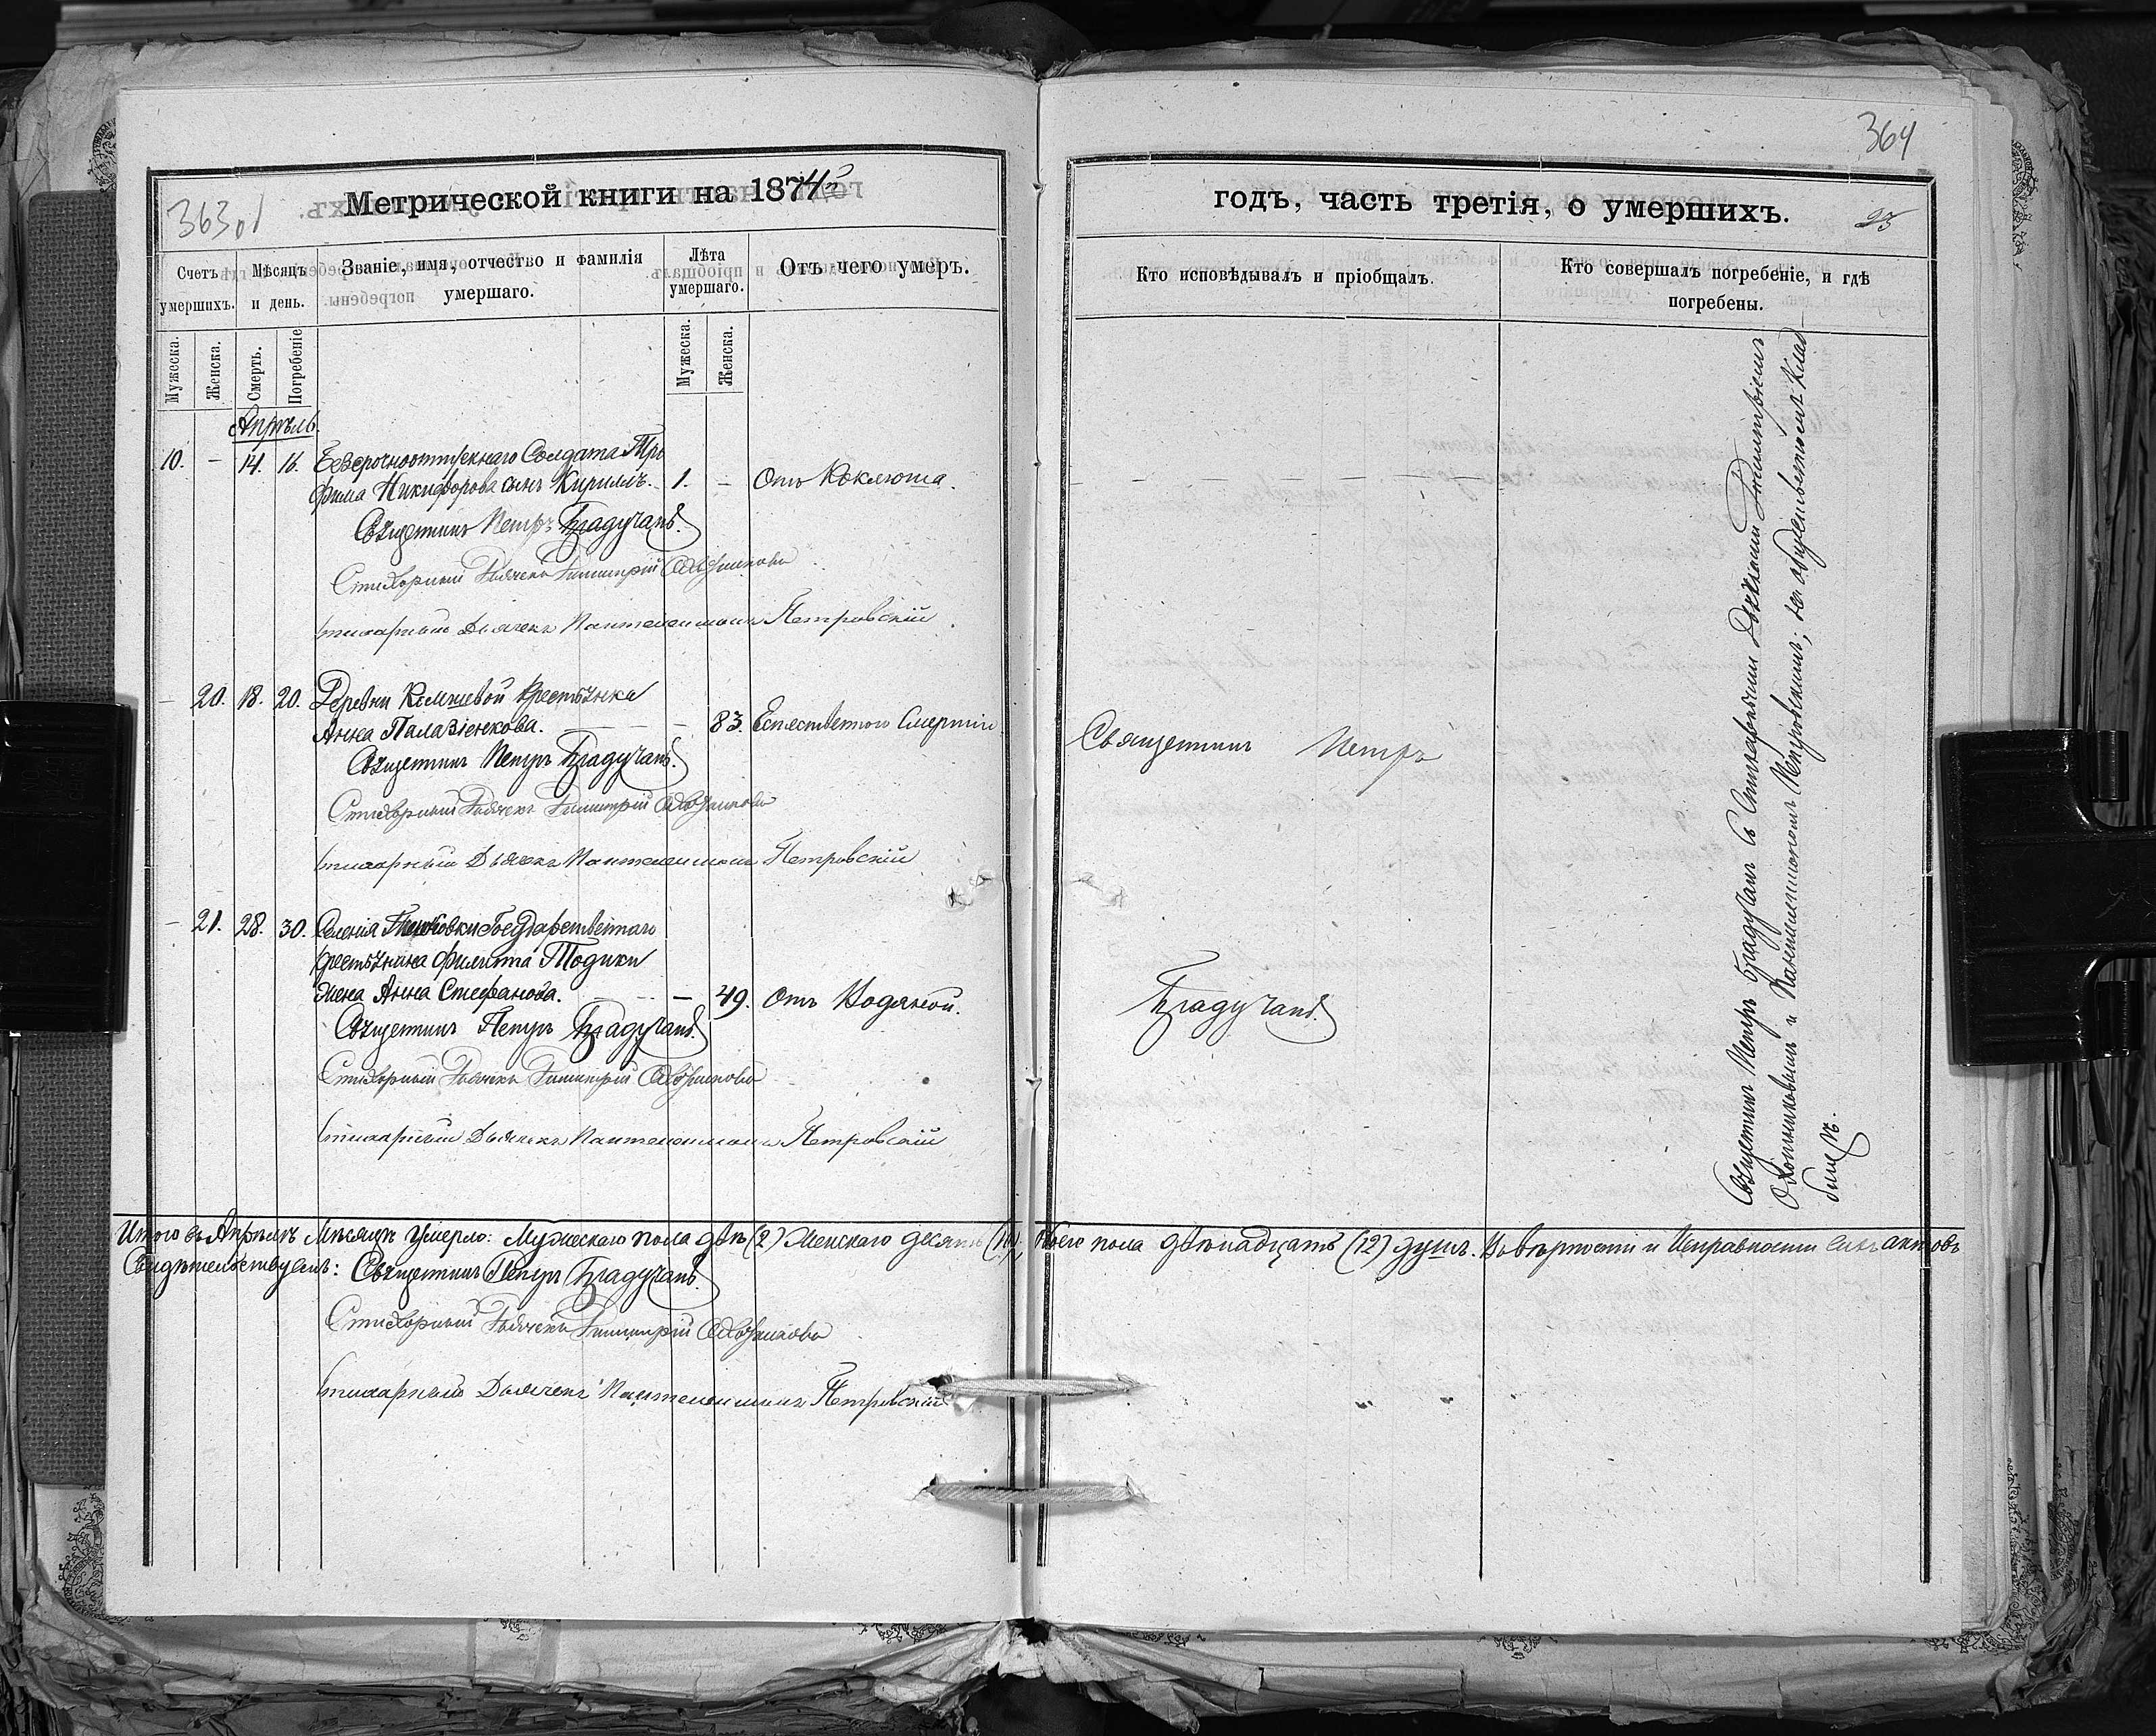 364
363об
Метрической книги на 1874й
годъ, часть третія, о умершихъ.
23
Счетъ умершихъ.
Мѣсяцъ и день.
Званіе, имя, отчество и фамилія умершаго.
Лѣта умершаго.
Отъ чего умеръ.
Кто исповѣдывалъ и пріобщалъ.
Кто совершалъ погребеніе, и гдѣ погребены.
Мужеска.
Женска.
Смерть.
Погребеніе
Мужеска.
Женска.
Апрѣль.
10. – 14. 16. Безсрочноотпускнаго Солдата Тро
фима Никифорова сынъ Кириллъ. 1. – Отъ Коклюша.
Священникъ Петръ Брадучанъ.
Стихарный Дьячекъ Димитрій
Стихарный Дьячекъ Пантелеимонъ Петровскій
– 20. 18. 20. Деревни крестьянка
Анна – 83. Естественною Смертію
Священникъ Петръ Брадучанъ.
Стихарный Дьячекъ Димитрій
Стихарный Дьячекъ Пантелеимонъ Петровскій
– 21. 28. 30. Селенія Государственнаго
крестьянина Филиппа Тодики
жена Анна Стефанова. – 49. Отъ Водяной.
Священникъ Петръ Брадучанъ.
Стихарный Дьячекъ Димитрій
Стихарный Дьячекъ Пантелеимонъ Петровскій
Священникъ Петръ
Брадучанъ.
Священникъ Петръ Брадучанъ съ Стихарными Дьячками Димитріемъ
и Пантелеимономъ Петровскимъ; на общественномъ Клад
бищѣ.
Итого въ Апрѣлѣ Мѣсяцѣ умерло: Мужескаго пола два (2) Женскаго десять (10), Обоего пола двѣнадцать (12) душъ. Въ вѣрности и Исправности сихъ актовъ
Свидѣтельствуемъ: Священникъ Петръ Брадучанъ.
Стихарный Дьячекъ Димитрій
Стихарный Дьячекъ Пантелеимонъ Петровскій